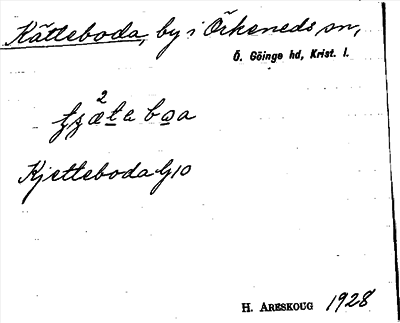 Kätteboda, by i Örkeneds sn,
Ö. Göinge hd, Krist. l.
2
Kjetteboda Gl0
H. ARESKOUG 1928